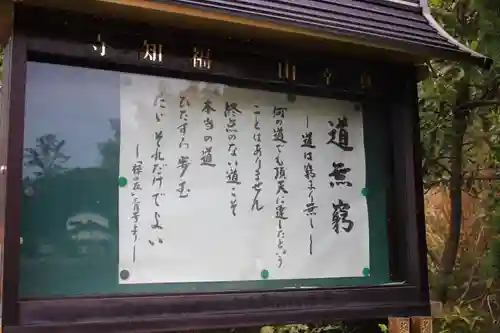 幸山福知寺
道無窮
―道は窮まり無し―
何の道でも頂天に達したという
ことはありません
終点のない道こそ
本当の道
ひたすら歩む
たゞそれだけでよい
―「禅の友」月号より―